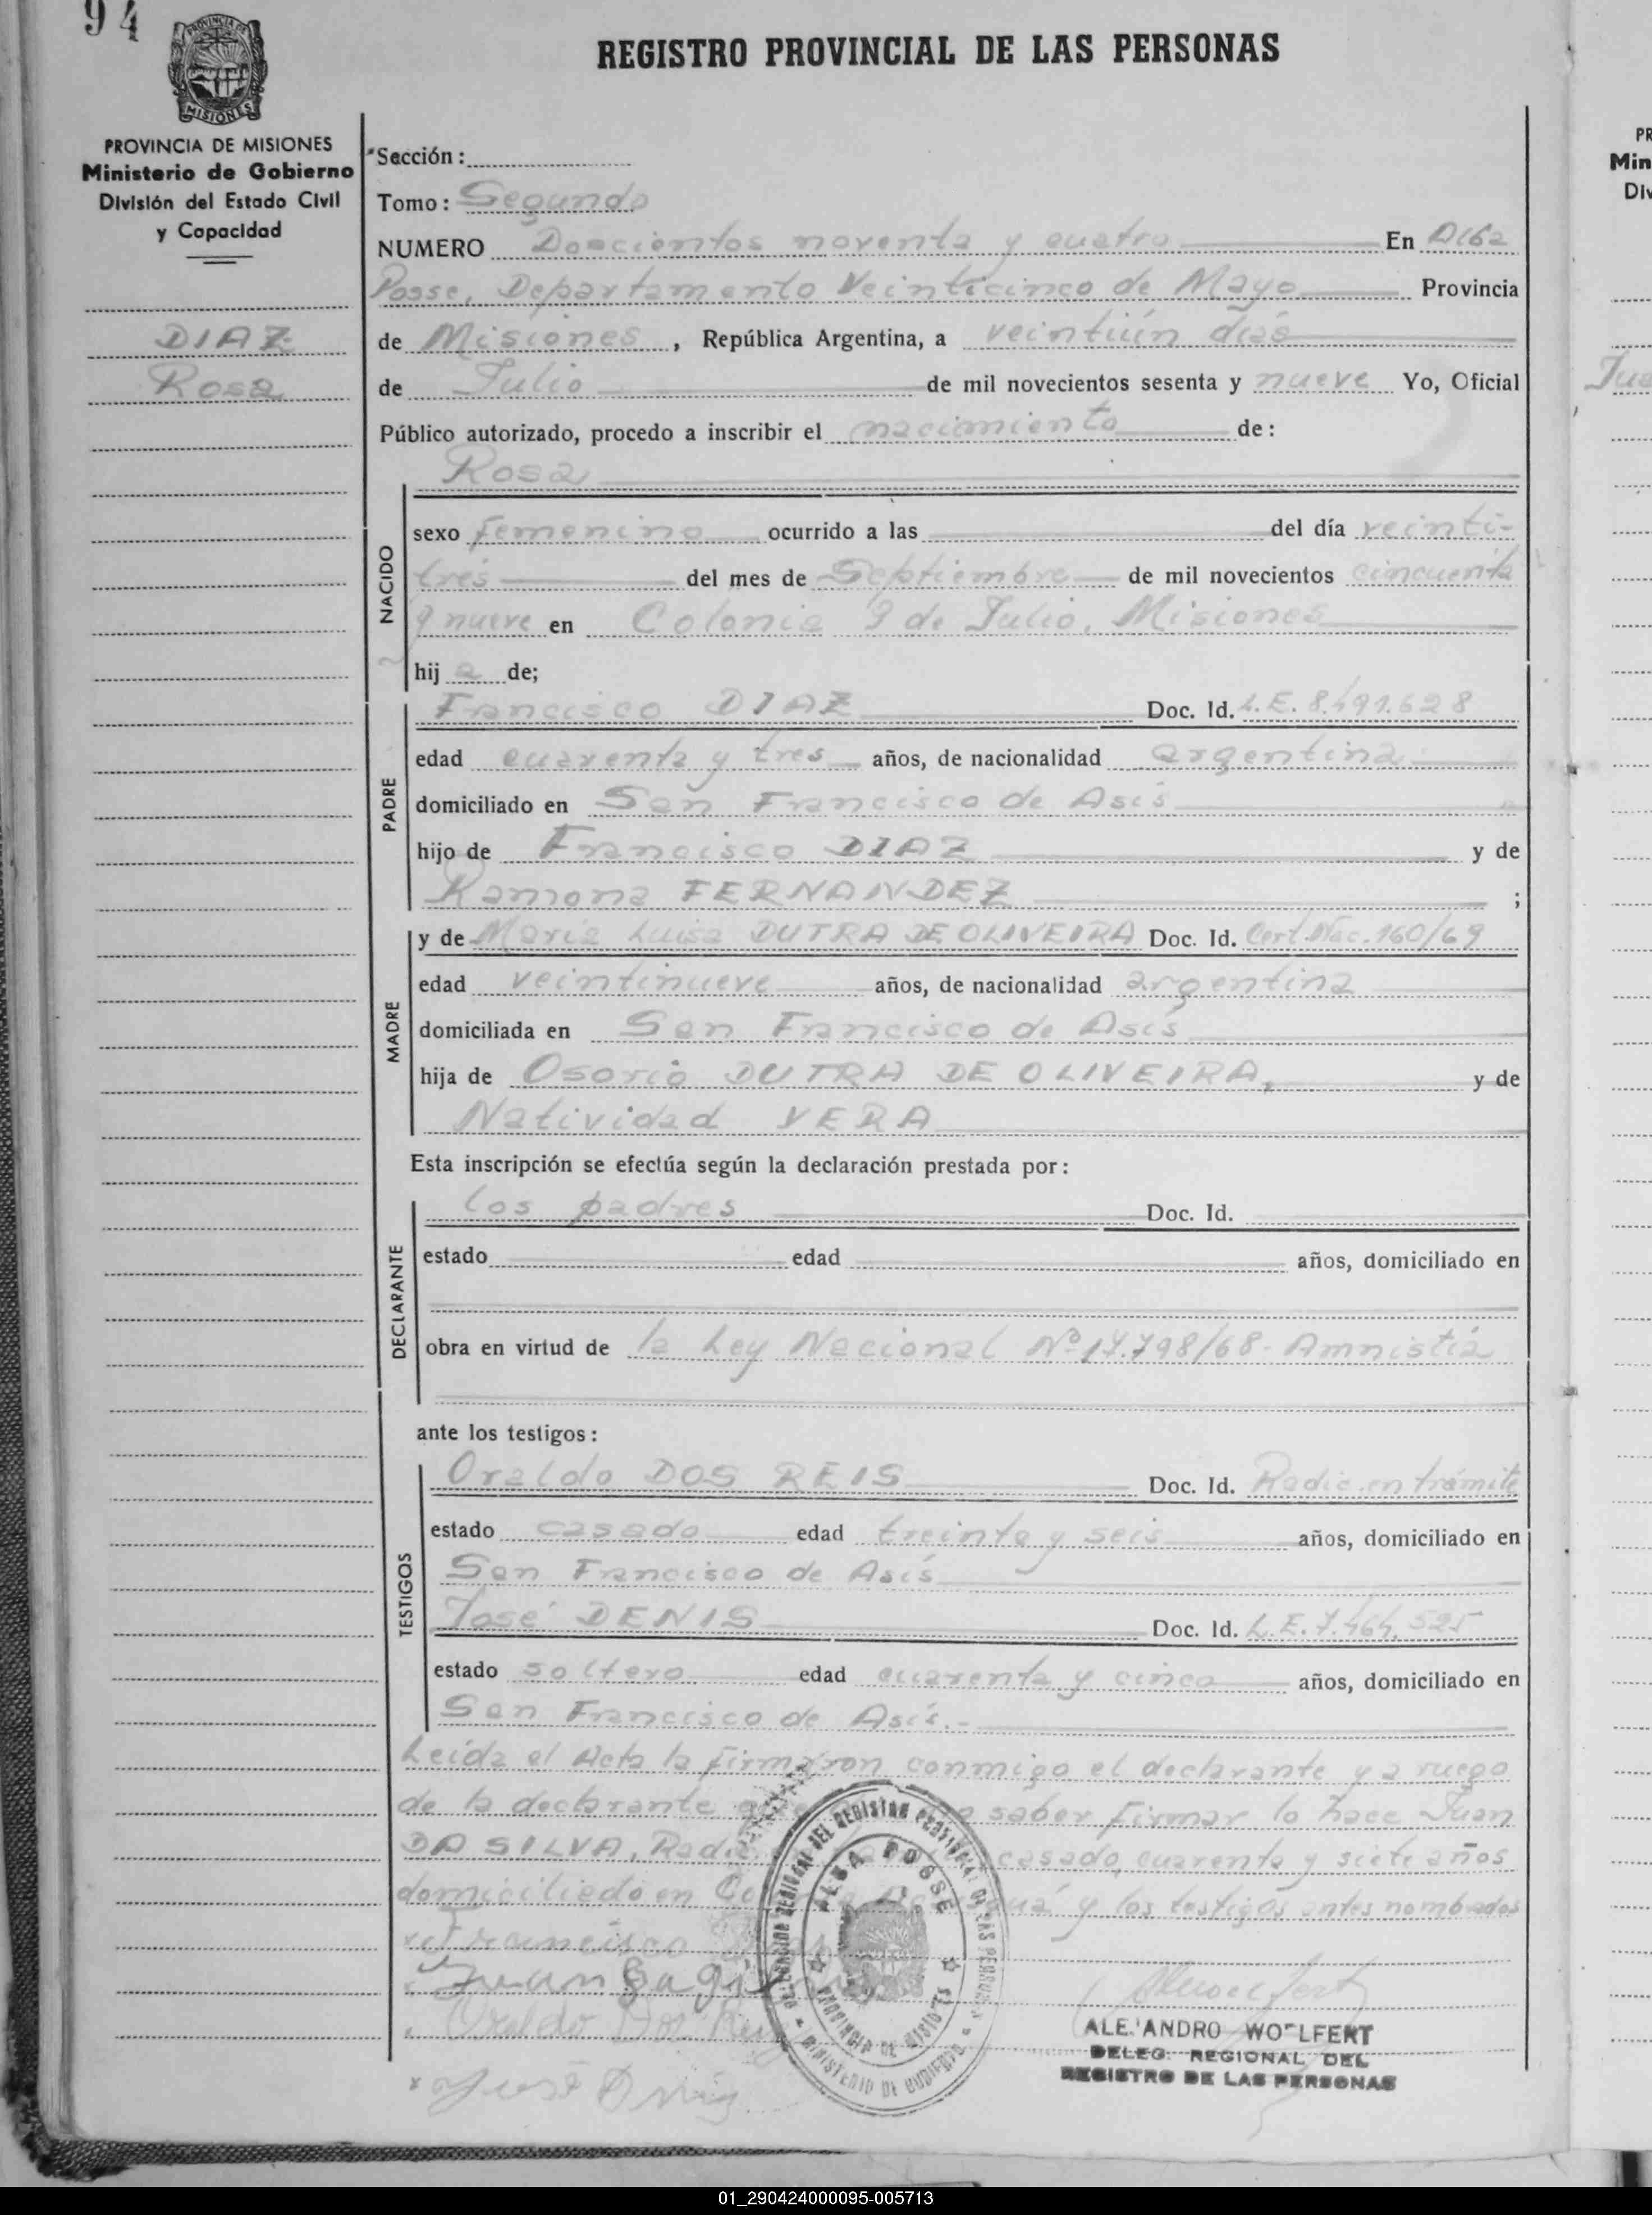 94
REGISTRO PROVINCIAL DE LAS PERSONAS
PROVINCIA DE MISIONES
MISIONES
PROVINCIA DE MISIONES
Ministerio de Gobierno
División del Estado Civil
y Capacidad
DIAZ
Rosa
Sección:
Tomo: Segundo
NUMERO Doscientos noventa y cuatro En Alba
Posse, Departamento Veinticinco de Mayo Provincia
de Misiones, República Argentina, a veintiún días
de Julio de mil novecientos sesenta y nueve Yo, Oficial
Público autorizado, procedo a inscribir el nacimiento de:
Rosa
NACIDO
sexo femenino ocurrido a las del día veinti-
trés del mes de Septiembre de mil novecientos cincuenta
y nueve en Colonia 9 de Julio, Misiones
hija de;
PADRE
Francisco DIAZ Doc. Id. L.E. 8.491.628
edad cuarenta y tres años, de nacionalidad argentina
domiciliado en San Francisco de Asís
hijo de Francisco DIAZ y de
Ramona FERNANDEZ ;
MADRE
y de María Luisa DUTRA DE OLIVEIRA Doc. Id. Cert. Nac. 160/69
edad veintinueve años, de nacionalidad argentina
domiciliada en San Francisco de Asís
hija de Osorio DUTRA DE OLIVEIRA, y de
Natividad VERA
Esta inscripción se efectúa según la declaración prestada por:
DECLARANTE
los padres Doc. Id.
estado edad años, domiciliado en
obra en virtud de la Ley Nacional Nº 17.798/68- Amnistía
ante los testigos:
TESTIGOS
Oraldo DOS REIS Doc. Id. Radic. en trámite
estado casado edad treinta y seis años, domiciliado en
San Francisco de Asís
José DENIS Doc. Id. L.E. 7.464.525
estado soltero edad cuarenta y cinco años, domiciliado en
San Francisco de Asís.-
Leída el Acta la firmaron conmigo el declarante y a ruego
de la declarante saber firmar lo hace Juan
DA SILVA, Radic. casado, cuarenta y siete años
domiciliado en y los testigos antes nombrados
Francisco
Juan
Oraldo Dos Reis
José
DELEGACION REGIONAL DEL REGISTRO PROVINCIAL DE LAS PERSONAS
ALBA POSSE
PROVINCIA DE MISIONES
MINISTERIO DE GOBIERNO
ALEJANDRO WOLFERT
DELEG. REGIONAL DEL
REGISTRO DE LAS PERSONAS
PR
Min
Div
01_290424000095-005713